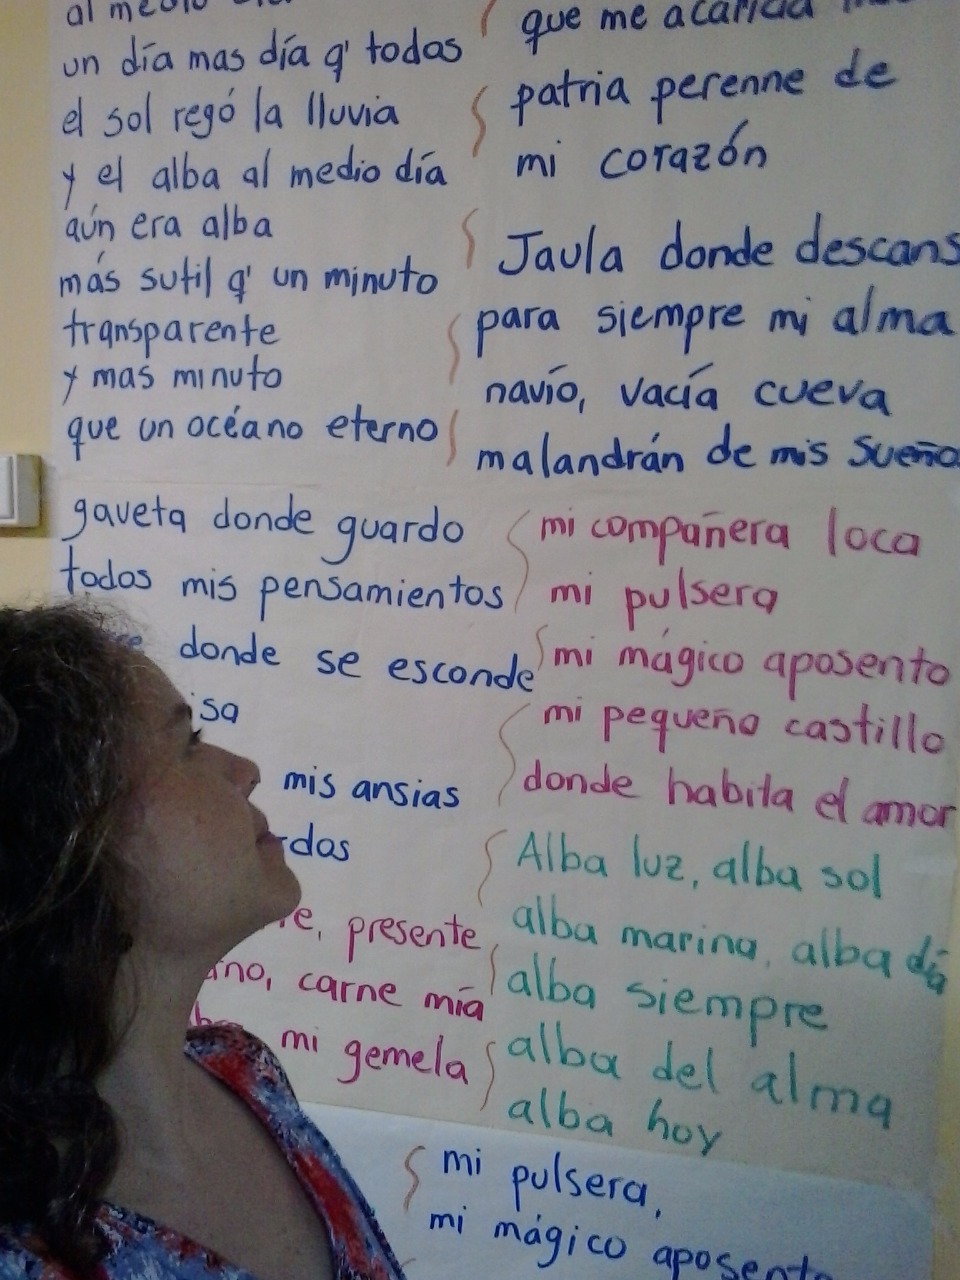 un día mas día q' todas
el sol regó la lluvia
y el alba al medio día
aún era alba
más sutil q' un minuto
transparente
y mas minuto
que un océano eterno
gaveta donde guardo
todos mis pensamientos
donde se esconde
mis ansias
presente
carne mía
mi gemela
que me acaricia
patria perenne de
mi corazón
Jaula donde descans
para siempre mi alma
navío, vacía cueva
malandrán de mis sueño
mi compañera loca
mi pulsera
mi mágico aposento
mi pequeño castillo
donde habita el amor
Alba luz, alba sol
alba marina, alba día
alba siempre
alba del alma
alba hoy
mi pulsera,
mi mágico aposento